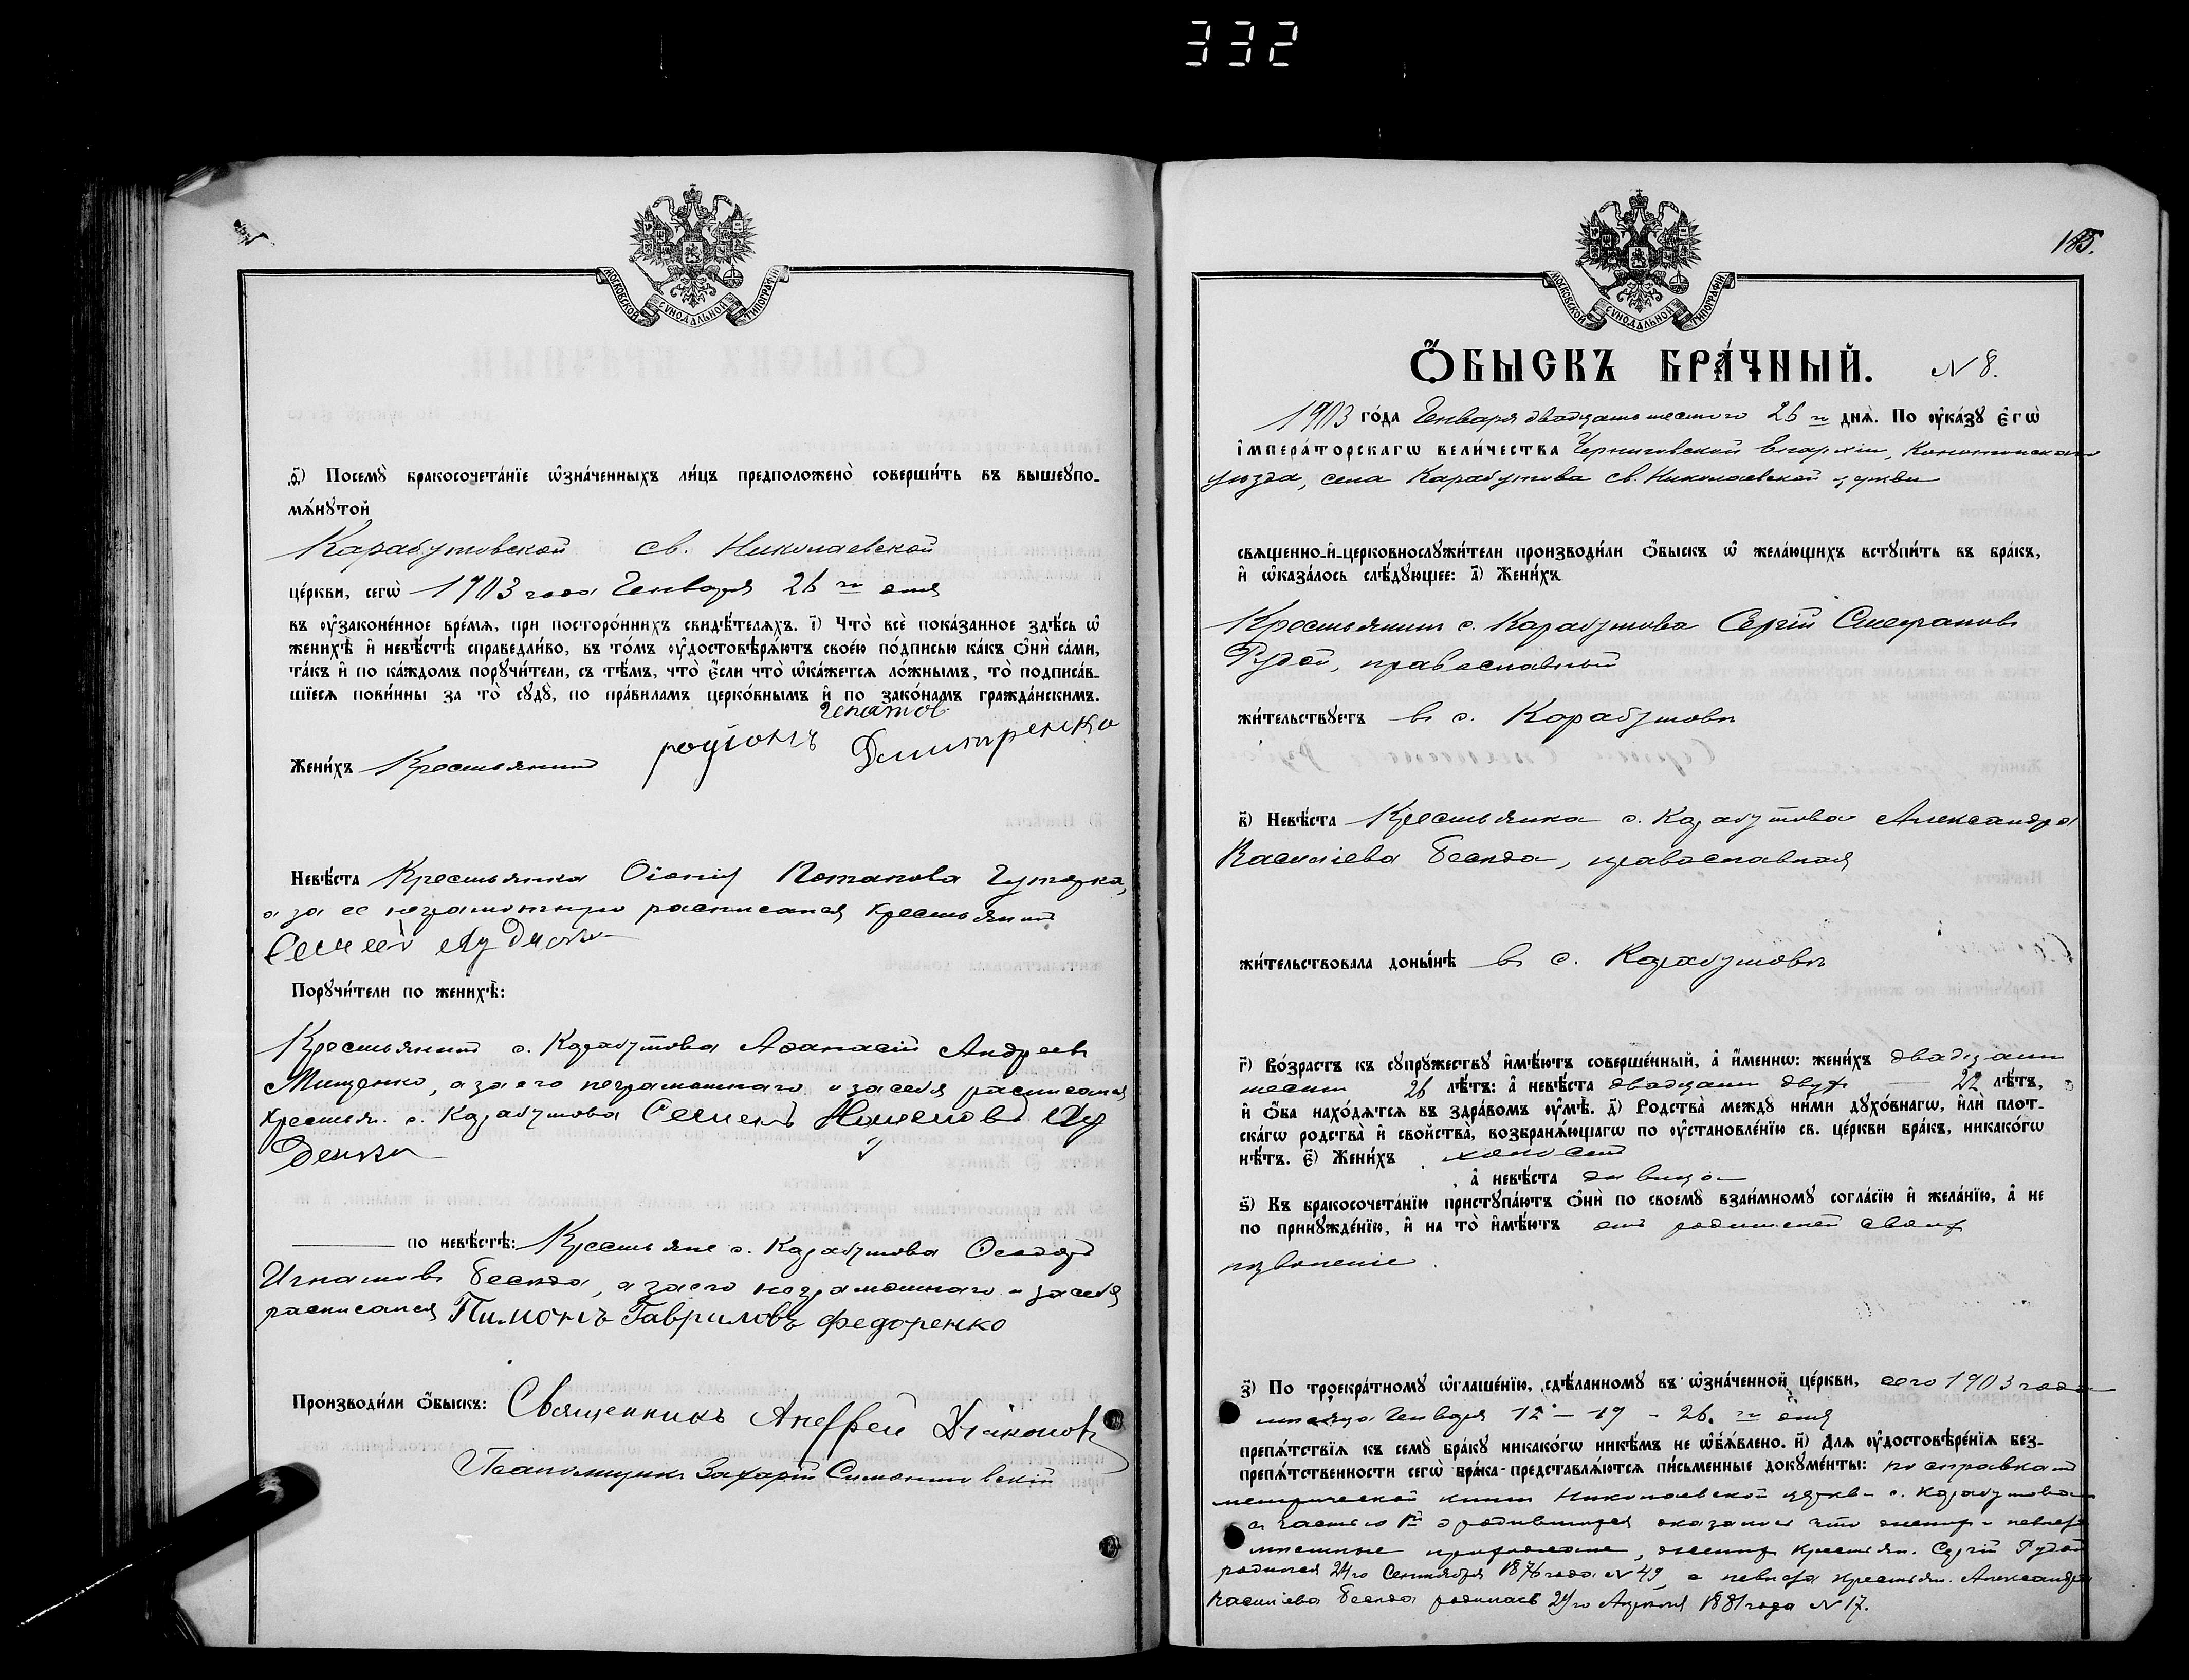 332
МОСКОВСКОЙ СѴНОДАЛЬНОЙ ТИПОГРАФІИ
д҃) Посемꙋ̀ бракосочета́нїе ѡ҆зна́ченныхъ ли́цъ предположено̀ соверши́ть въ вышеꙋпо-
мѧ́нꙋтой
Карабутовской св. Николаевской
це́ркви, сегѡ̀ 1903 года Генваря 26 го дня
въ ᲂу҆законе́нное вре́мѧ, при посторо́ннихъ свидѣ́телѧхъ. і҃) Что̀ всѐ пока́занное здѣ́сь ѡ҆
женихѣ̀ и҆ невѣ́стѣ справедли́во, въ то́мъ ᲂу҆достовѣрѧ́ютъ свое́ю по́дписью ка́къ ѻ҆нѝ са́ми,
та́къ и҆ по ка́ждомъ порꙋчи́тели, съ тѣ́мъ, что̀ є҆́сли что̀ ѡ҆ка́жетсѧ ло́жнымъ, то̀ подписа́в-
шїесѧ пови́нны за то̀ сꙋдꙋ̀, по пра́виламъ церко́внымъ и҆ по зако́намъ гражда́нскимъ.
Женихъ Крестьянинъ родіонъ Дмитренко
Невѣ́ста Крестьянка Потапова
а за ее неграмотную расписался крестьянинъ
Порꙋчи́тели по женихѣ̀:
Крестьянинъ с. Карабутова Аѳанасій Андреевъ
Мищенко, а за его неграмотнаго и за себя расписался
крестьян. с. Карабутова Семенъ
по невѣ́стѣ: Крестьяне с. Карабутова Ѳеодоръ
Игнатовъ Беседа, а за его неграмотнаго и за себя
расписался Пимонъ Гавриловъ Федоренко
Производи́ли ѻ҆́быскъ: Священникъ Андрей Діаконовъ
Псаломщикъ Захарій
МОСКОВСКОЙ СѴНОДАЛЬНОЙ ТИПОГРАФІИ
Ѻ҆́БЫСКЪ БРА́ЧНЫЙ. N 8.
1903 го́да Генваря двадцать шестого 26 го днѧ̀. По ᲂу҆ка́зꙋ є҆гѡ̀
і҆мпера́торскагѡ вели́чества Черниговской епархіи, Конотопскаго
уѣзда, села Карабутова св. Николаевской церкви
свѧщенно-и҆-церковнослꙋжи́тели производи́ли ѻ҆́быскъ ѡ҆ жела́ющихъ встꙋпи́ть въ бра́къ,
и҆ ѡ҆каза́лось слѣ́дꙋющее: а҃) Жени́хъ
Крестьянинъ с. Карабутова Сергій Стефановъ
Рудой, православный
жи́тельствꙋетъ въ с. Карабутовѣ
в҃) Невѣ́ста Крестьянка с. Карабутова Александра
Василіева Беседа, православная
жи́тельствовала доны́нѣ въ с. Карабутовѣ
г҃) Во́зрастъ къ сꙋпрꙋ́жествꙋ и҆мѣ́ютъ соверше́нный, а҆ и҆́меннѡ: жени́хъ двадцати
шести 26 лѣ́тъ: а҆ невѣ́ста двадцати двухъ 22 лѣ́тъ,
и҆ ѻ҆́ба нахо́дѧтсѧ въ здра́вомъ ᲂу҆мѣ̀. д҃) Родства̀ междꙋ̀ ни́ми дꙋхо́внагѡ, и҆лѝ плот-
ска́гѡ родства̀ и҆ сво́йства̀, возбранѧ́ющагѡ по ᲂу҆становле́нїю св. це́ркви бра́къ, никако́гѡ
нѣ́тъ. є҃) Жени́хъ холостъ
, а҆ невѣ́ста дѣвица
ѕ҃) Къ бракосочета́нїю пристꙋпа́ютъ ѻ҆нѝ по своемꙋ̀ взаи́мномꙋ согла́сїю и҆ жела́нїю, а҆ не
по принꙋжде́нїю, и҆ на то̀ и҆мѣ́ютъ отъ родителей своихъ
позволеніе.
з҃) По троекра́тномꙋ ѡ҆глаше́нїю, сдѣ́ланномꙋ въ ѡ҆зна́ченной це́ркви, сего 1903 года
мѣсяца Генваря 12 – 19 – 26. го дня
препѧ́тствїѧ къ семꙋ̀ бра́кꙋ никако́гѡ никѣ́мъ не ѡ҆б̾ѧ́влено. и҃) Длѧ ᲂу҆достовѣре́нїѧ без-
препѧ́тственности сегѡ̀ бра́ка представлѧ́ютсѧ пи́сьменные докꙋме́нты: по справкамъ
метрической книги Николаевской церкви с. Карабутова
часть 1я о родившихся оказалось что женихъ и невѣста
прихожане, женихъ крестьян. Сергій Рудой
родился 24го Сентября 1876 года N 49, а невѣста крестьян. Александра
Василіева Беседа родилась 24го Апреля 1881 года N 17.